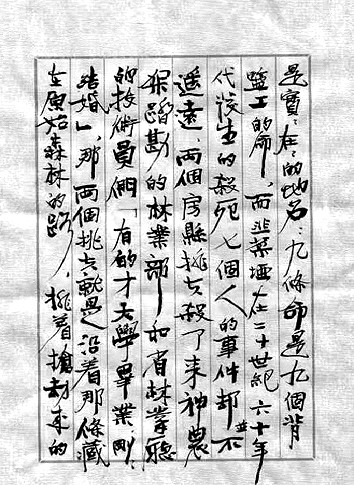 是實:在:的地名:九條命是九個背
鹽工的命,而韭菜埡在二十世紀六十年
代發生的殺死七個人的事件却並不
遥遠,兩個房縣挑夫殺了來神農
架踏勘的林業部、和省林業廳
的技術員們「有的才大學畢業,剛
結婚」,那兩個挑夫就是沿着那條藏
在原始森林的路,挑着搶劫來的